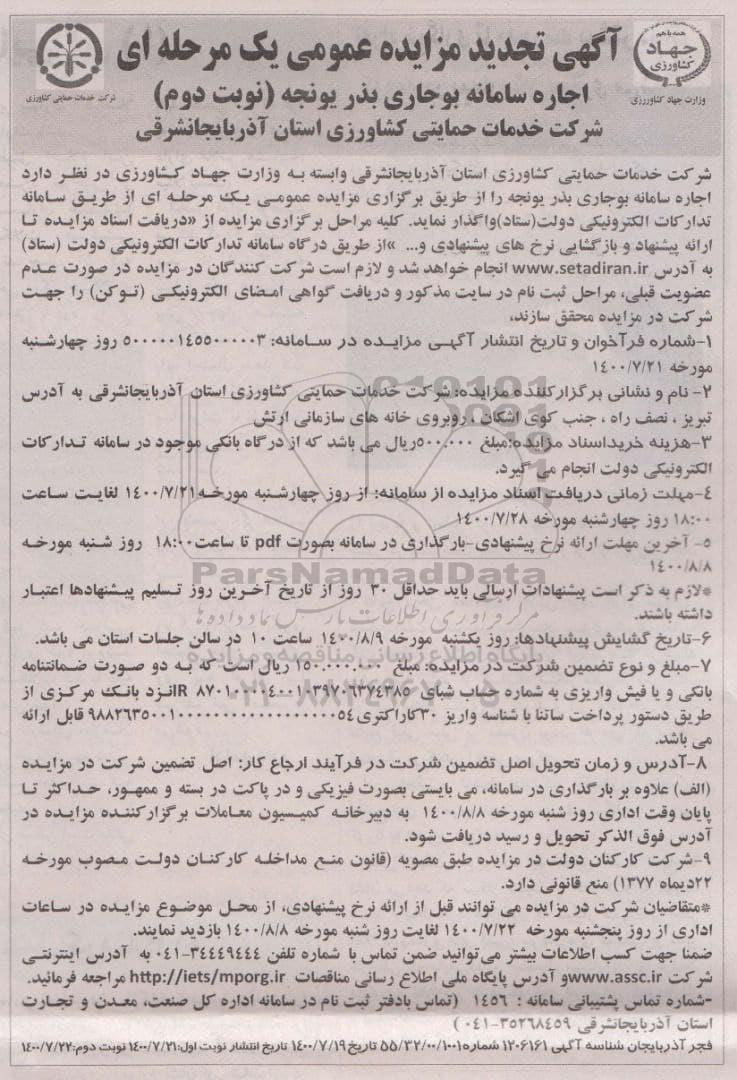 آگهی تجدید مزایده عمومی یک مرحله ای
اجاره سامانه بوجاری بذر یونجه (نوبت دوم)
شرکت خدمات حمایتی کشاورزی استان آذربایجانشرقی
همه با هم
جهاد
کشاورزی
وزارت جهاد کشاورزی
شرکت خدمات حمایتی کشاورزی
شرکت خدمات حمایتی کشاورزی استان آذربایجانشرقی وابسته به وزارت جهاد کشاورزی در نظر دارد
اجاره سامانه بوجاری بذر یونجه را از طریق برگزاری مزایده عمومی یک مرحله ای از طریق سامانه
تدارکات الکترونیکی دولت(ستاد)واگذار نماید. کلیه مراحل برگزاری مزایده از «دریافت اسناد مزایده تا
ارائه پیشنهاد و بازگشایی نرخ های پیشنهادی و... »از طریق درگاه سامانه تدارکات الکترونیکی دولت (ستاد)
به آدرس www.setadiran.ir انجام خواهد شد و لازم است شرکت کنندگان در مزایده در صورت عدم
عضویت قبلی، مراحل ثبت نام در سایت مذکور و دریافت گواهی امضای الکترونیکی (توکن) را جهت
شرکت در مزایده محقق سازند،
۱-شماره فرآخوان و تاریخ انتشار آگهی مزایده در سامانه: ۵۰۰۰۰۰۱۴۵۵۰۰۰۰۰۳ روز چهارشنبه
مورخه ۱۴۰۰/۷/۲۱
۲- نام و نشانی برگزارکننده مزایده: شرکت خدمات حمایتی کشاورزی استان آذربایجانشرقی به آدرس
تبریز ، نصف راه ، جنب کوی اشکان ، روبروی خانه های سازمانی ارتش
۳-هزینه خریداسناد مزایده:مبلغ ۵۰۰.۰۰۰ریال می باشد که از درگاه بانکی موجود در سامانه تدارکات
الکترونیکی دولت انجام می گیرد.
۴-مهلت زمانی دریافت اسناد مزایده از سامانه: از روز چهارشنبه مورخه۱۴۰۰/۷/۲۱ لغایت ساعت
۱۸:۰۰ روز چهارشنبه مورخه ۱۴۰۰/۷/۲۸
۵- آخرین مهلت ارائه نرخ پیشنهادی-بارگذاری در سامانه بصورت pdf تا ساعت۱۸:۰۰ روز شنبه مورخه
۱۴۰۰/۸/۸
*لازم به ذکر است پیشنهادات ارسالی باید حداقل ۳۰ روز از تاریخ آخرین روز تسلیم پیشنهادها اعتبار
داشته باشند.
۶-تاریخ گشایش پیشنهادها: روز یکشنبه مورخه ۱۴۰۰/۸/۹ ساعت ۱۰ در سالن جلسات استان می باشد.
۷-مبلغ و نوع تضمین شرکت در مزایده: مبلغ ۱۵۰.۰۰۰.۰۰۰ ریال است که به دو صورت ضمانتنامه
بانکی و یا فیش واریزی به شماره حساب شبای IR ۸۷۰۱۰۰۰۰۴۰۰۱۰۳۹۷۰۶۳۷۴۳۸۵نزد بانک مرکزی از
طریق دستور پرداخت ساتنا با شناسه واریز ۳۰کاراکتری قابل ارائه
می باشد.
۸-آدرس و زمان تحویل اصل تضمین شرکت در فرآیند ارجاع کار: اصل تضمین شرکت در مزایده
(الف) علاوه بر بارگذاری در سامانه، می بایستی بصورت فیزیکی و در پاکت در بسته و ممهور، حداکثر تا
پایان وقت اداری روز شنبه مورخه ۱۴۰۰/۸/۸ به دبیرخانه کمیسیون معاملات برگزارکننده مزایده در
آدرس فوق الذکر تحویل و رسید دریافت شود.
۹-شرکت کارکنان دولت در مزایده طبق مصوبه (قانون منع مداخله کارکنان دولت مصوب مورخه
۲۲دیماه ۱۳۷۷) منع قانونی دارد.
*متقاضیان شرکت در مزایده می توانند قبل از ارائه نرخ پیشنهادی، از محل موضوع مزایده در ساعات
اداری از روز پنجشنبه مورخه ۱۴۰۰/۷/۲۲ لغایت روز شنبه مورخه ۱۴۰۰/۸/۸ بازدید نمایند.
ضمنا جهت کسب اطلاعات بیشتر می‌توانید ضمن تماس با شماره تلفن ۳۴۴۴۹۴۴۴-۰۴۱ به آدرس اینترنتی
شرکت www.assc.irو آدرس پایگاه ملی اطلاع رسانی مناقصات http://iets/mporg.ir مراجعه فرمائید.
-شماره تماس پشتیبانی سامانه : ۱۴۵۶ (تماس بادفتر ثبت نام در سامانه اداره کل صنعت، معدن و تجارت
استان آذربایجانشرقی ۳۵۲۶۸۴۵۹-۰۴۱ )
فجر آذربایجان شناسه آگهی ۱۲۰۶۱۶۱ شماره۵۵/۳۲/۰۰/۱۰۰۱ تاریخ ۱۴۰۰/۷/۱۹ تاریخ انتشار نوبت اول:۱۴۰۰/۷/۲۱ نوبت دوم:۱۴۰۰/۷/۲۲
ParsNamadData
مرکز فرآوری اطلاعات پارس نماد داده ها
پایگاه اطلاع رسانی مناقصه و مزایده
۰۲۱-۸۸۳۴۹۶۷۰-۵